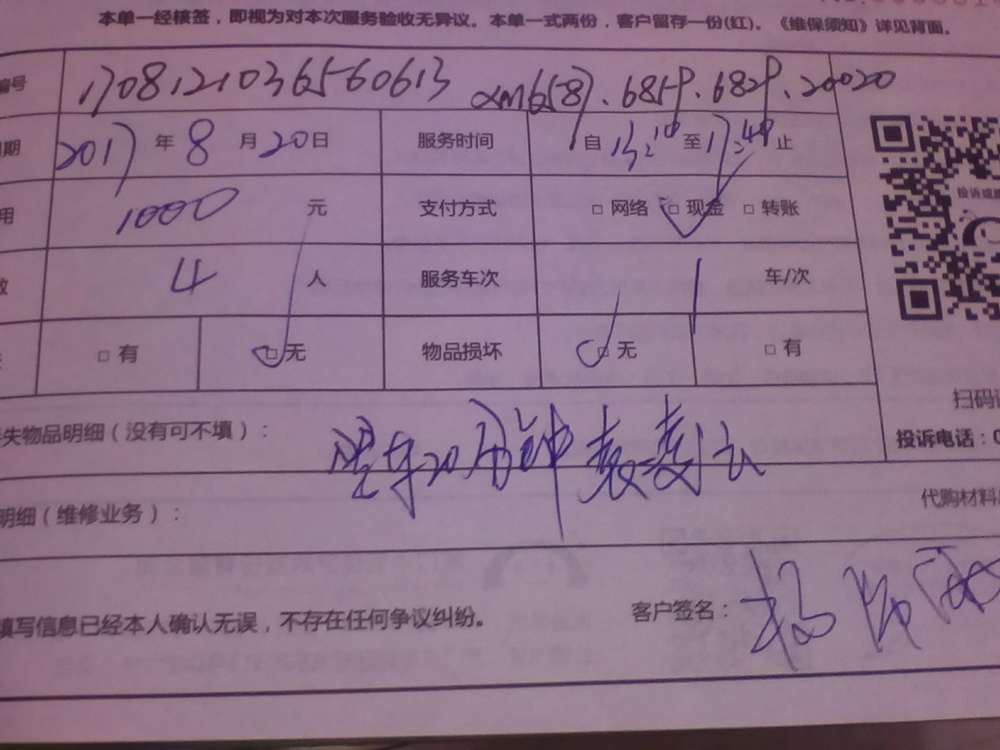 本单一经核签，即视为对本次服务验收无异议。本单一式两份，客户留存一份(红)。《维保须知》详见背面。
编号 1708121036560613
期 2017 年 8 月 20 日 服务时间 自 至 止
用 1000 元 支付方式 □ 网络 □ 现金 □ 转账
投诉或
数 4 人 服务车次 1 车/次
□ 有 □ 无 物品损坏 □ 无 □ 有
扫码
失物品明细（没有可不填）：
投诉电话：0
明细（维修业务）：
代购材料
填写信息已经本人确认无误，不存在任何争议纠纷。 客户签名：